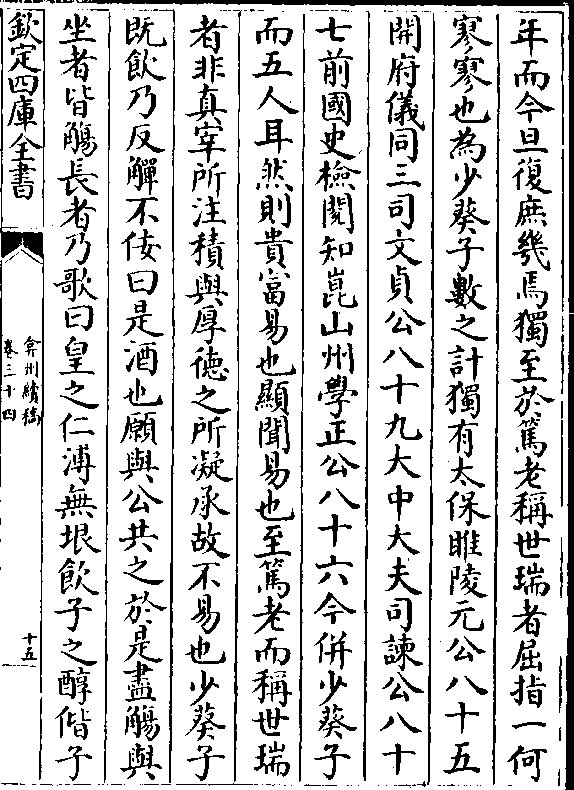 年而今旦復庶幾焉獨至於篤老稱世瑞者屈指一何
寥寥也為少葵子數之計獨有太保睢陵元公八十五
開府儀同三司文貞公八十九大中大夫司諫公八十
七前國史檢閱知崑山州學正公八十六今併少葵子
而五人耳然則貴富易也顯聞易也至篤老而稱世瑞
者非真宰所注積與厚德之所凝承故不易也少葵子
既飲乃反觶不佞曰是酒也願與公共之於是盡觴與
坐者皆觴長者乃歌曰皇之仁溥無垠飲子之醇偕子
欽定四庫全書
弇州續稿
卷三十四
十五